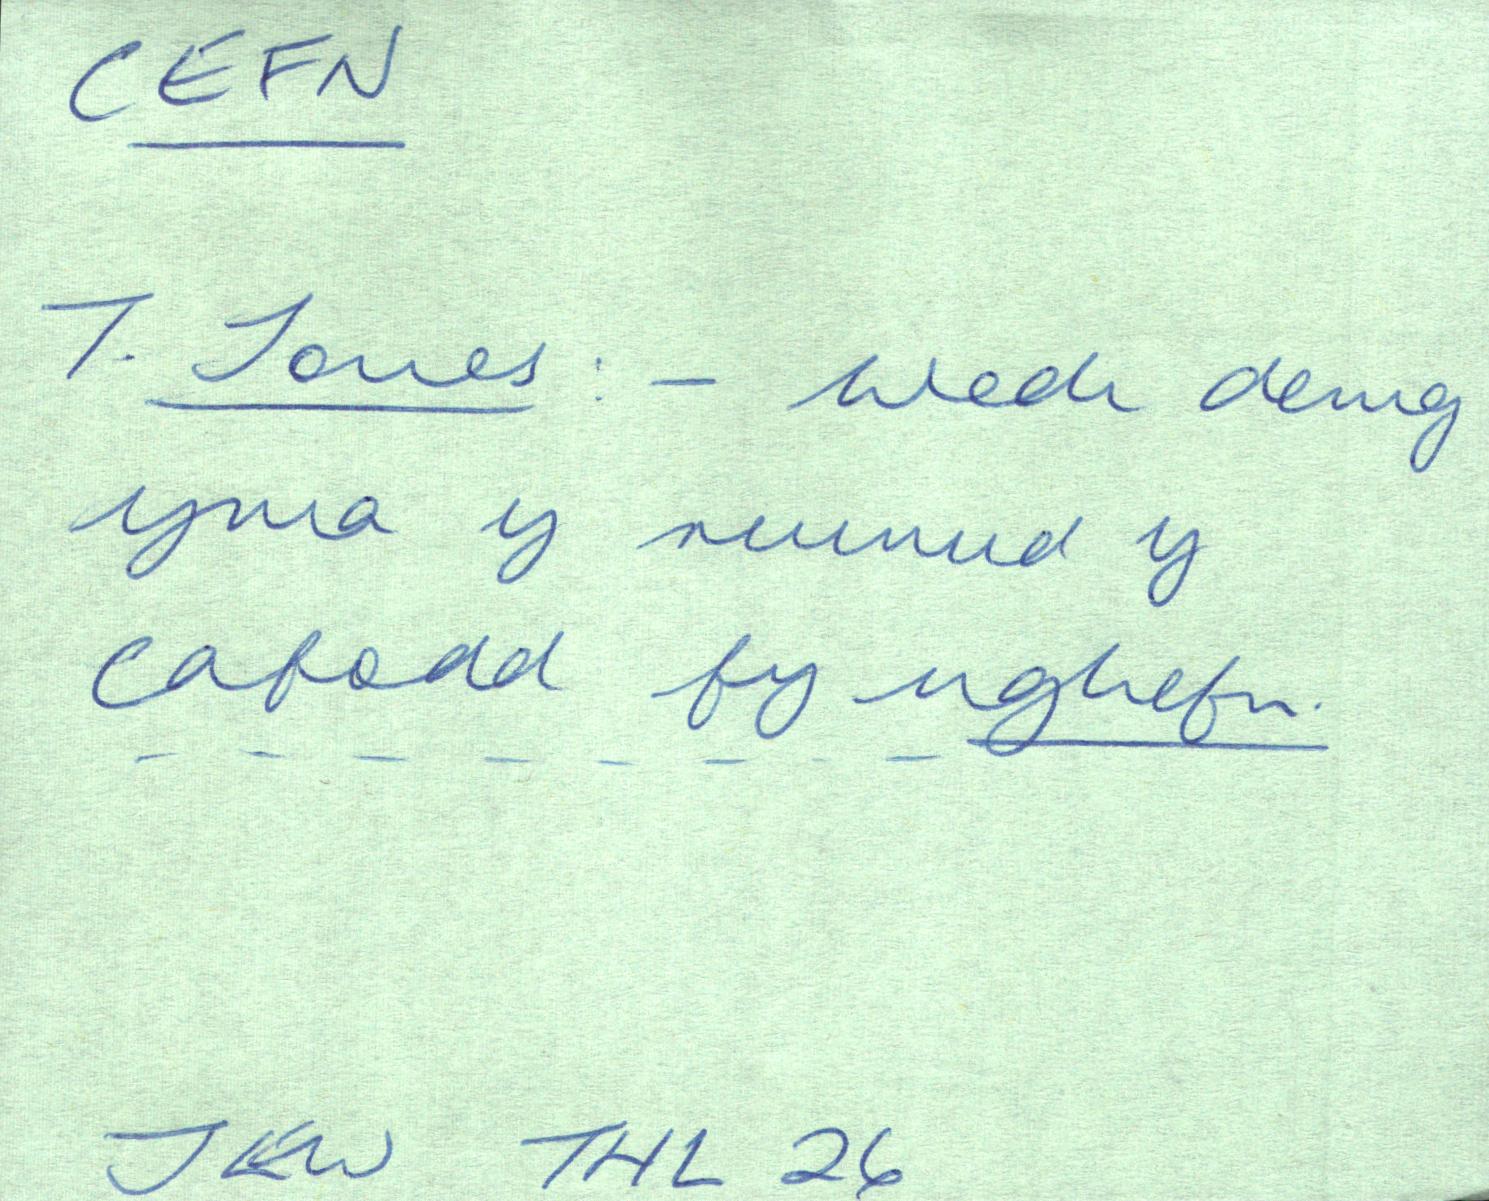 CEFN
T. Jones : - wedi deng
yma y munud y
cafodd fy nghefn.
JEW THL 26